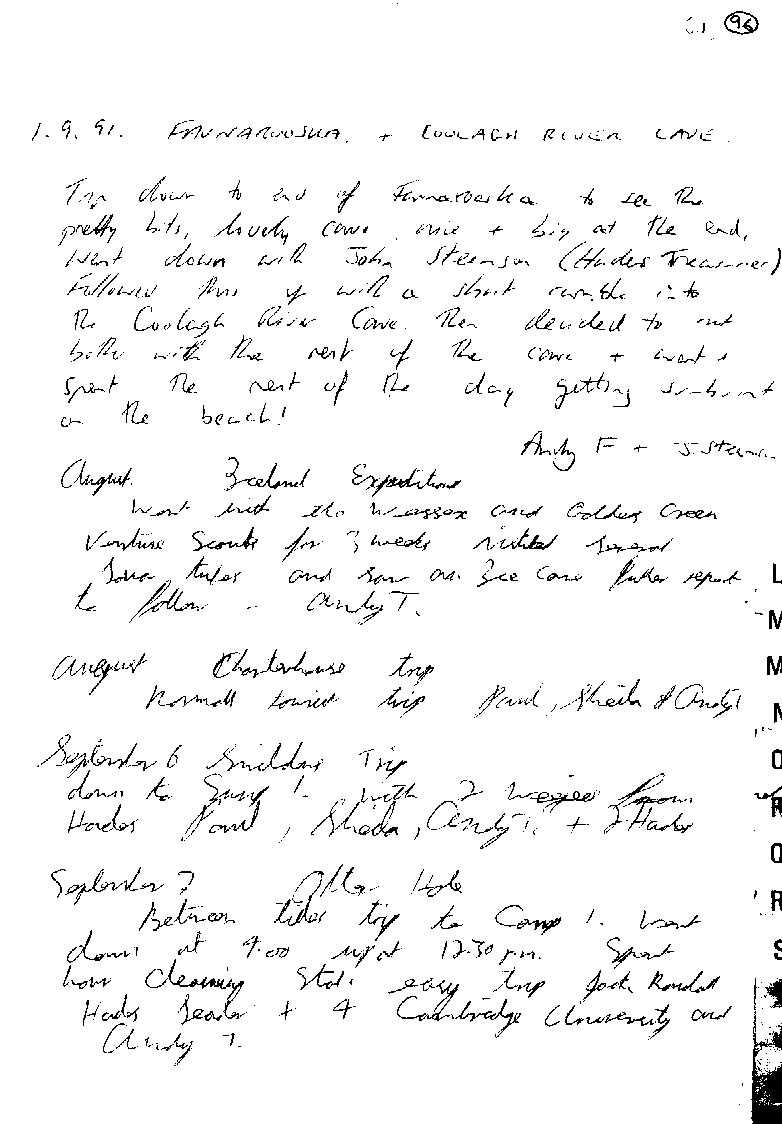 96
1.9.91. FAUNAROOSKA. + COOLAGH RIVER CAVE.
Trip down to end of Faunarooska to see the
pretty bits, lovely cave, nice + big at the end,
Went down with John Steenson (Hades Treasurer)
Followed this up with a short ramble into
the Coolagh River Cave. Then decided to not
bother with the rest of the cave + went +
spent the rest of the day getting sunburnt
on the beach!
Andy F +
August. Iceland Expedition
Went with the Wessex and Golders Green
Venture Scouts for 3 weeks visited several
lava tubes and saw an Ice Cave fuller report
to follow - Andy T.
August Charterhouse trip
Normall tourist trip Paul, Sheila & Andy T
September 6 Swildons Trip
down to Sump 1. with 2 from
Hades Paul, Sheila, Andy T. + 2 Hades
September 7 Otter Hole
Between tides trip to Camp 1. Went
down at 9.00 up at 12.30 pm. Spent
hour cleaning Stal. easy trip Jack Randall
Hades Leader + 4 Cambridge University and
Andy T.
L
M
M
N
O
R
O
R
S